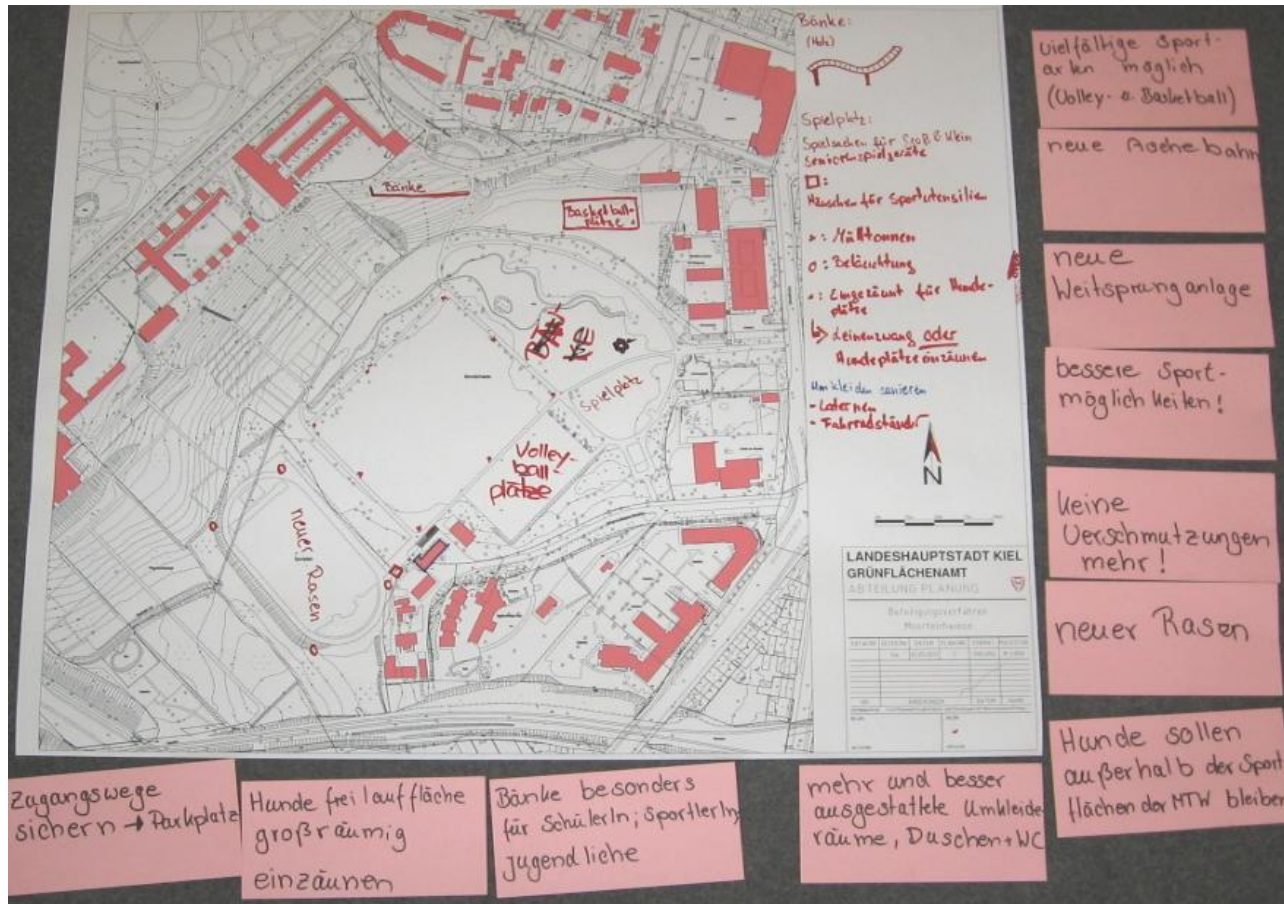 Bänke:
(Holz)
Spielplatz:
Spielsachen für Groß & Klein
Seniorenspielgeräte
:
Häuschen für Sportutensilien
: Mülltonnen
o : Beleuchtung
: Eingezäunt für Hunde-
plätze
↳ Leinenzwang oder
Hundeplätze einzäunen
Umkleiden sanieren
- Laternen
- Fahrradständer
N
LANDESHAUPTSTADT KIEL
GRÜNFLÄCHENAMT
ABTEILUNG PLANUNG
Beteiligungsverfahren
Bänke
Basketball-
plätze
Spielplatz
Volley-
ball
plätze
neuer Rasen
vielfältige Sport-
arten möglich
(Volley- u. Basketball)
neue Aschebahn
neue
Weitsprunganlage
bessere Sport-
möglichkeiten!
keine
Verschmutzungen
mehr!
neuer Rasen
Hunde sollen
außerhalb der Sport
flächen der MTW bleiben
Zugangswege
sichern → Parkplatz
Hunde freilauffläche
großräumig
einzäunen
Bänke besonders
für SchülerIn; SportlerIn;
jugendliche
mehr und besser
ausgestattete Umkleide-
räume, Duschen + WC